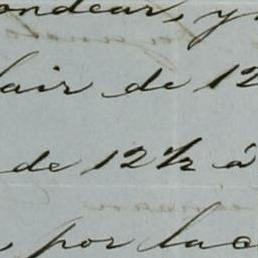 ondear, y
air de 12
de 12½ á
por la